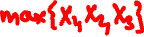 max{X₁, X₂, X₃}